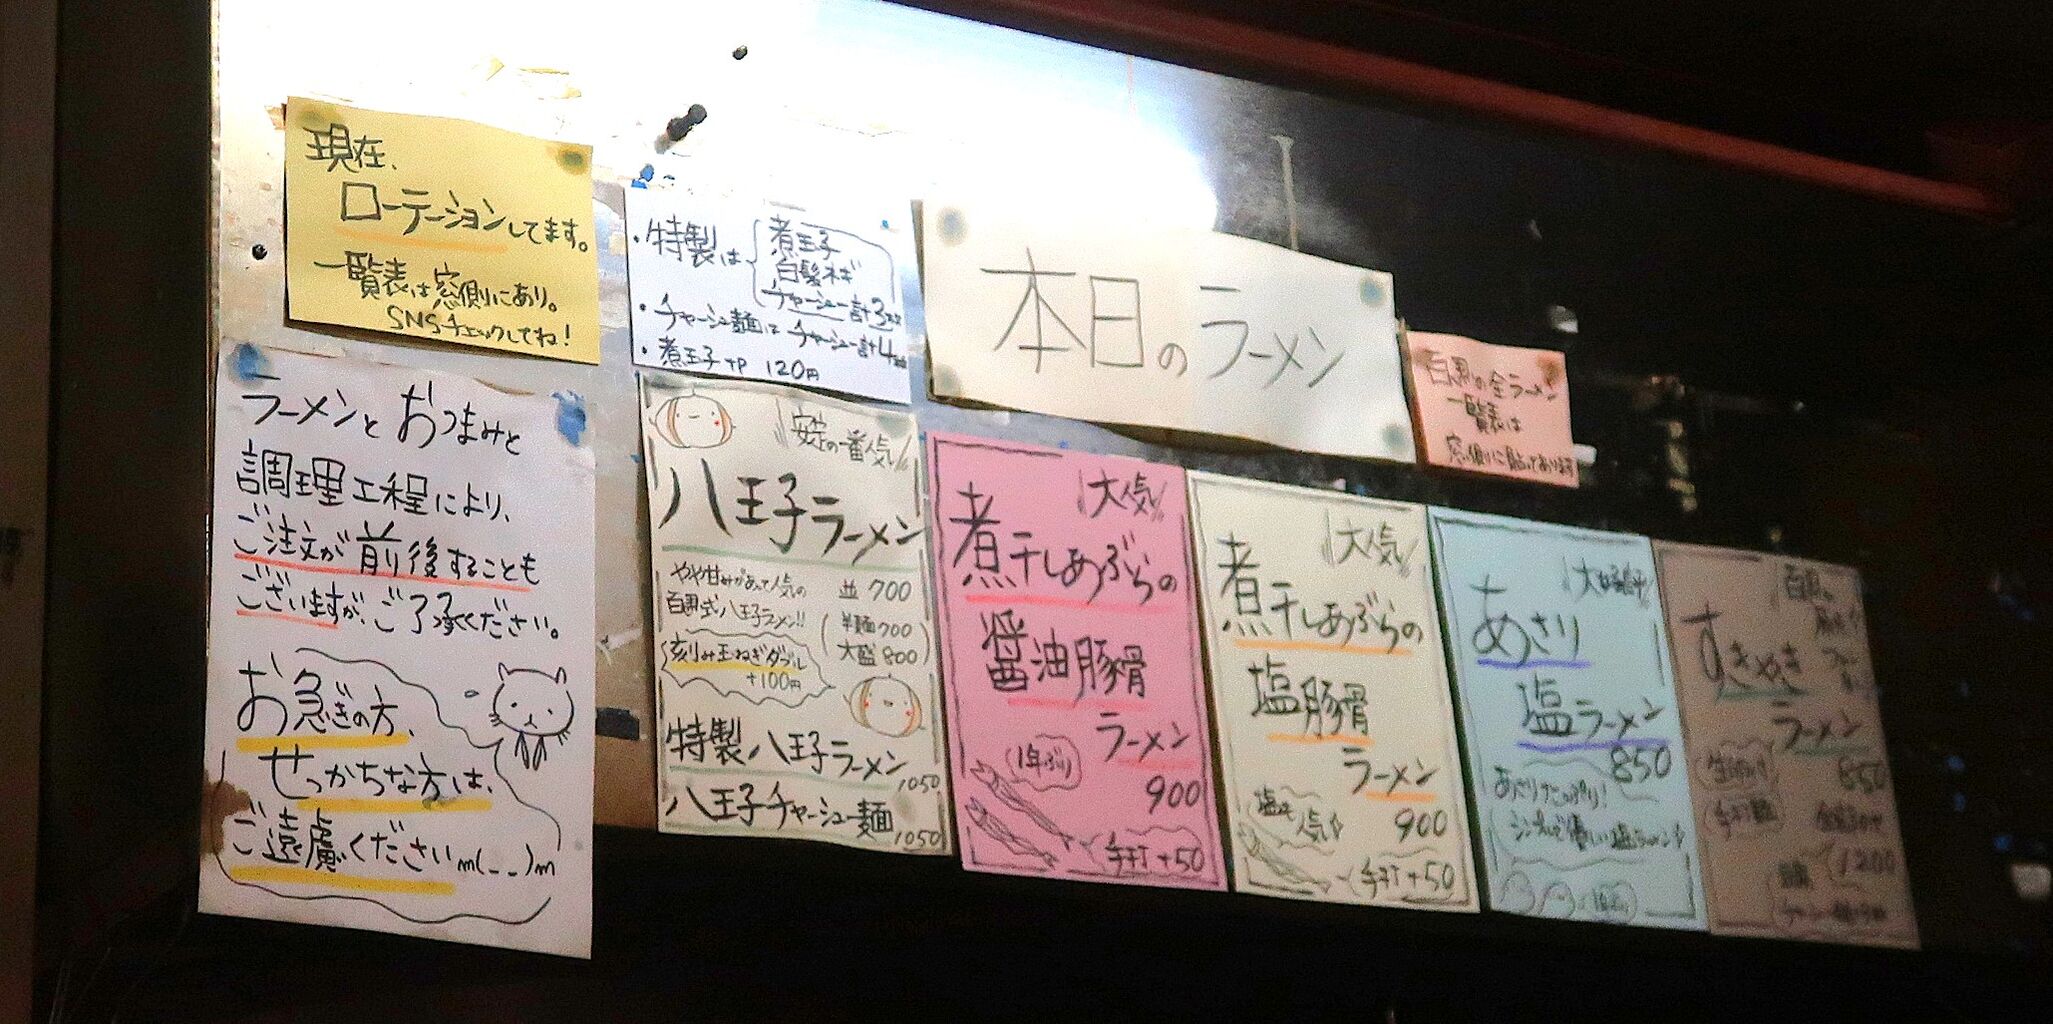 現在、
ローテーションしてます。
一覧表は窓側にあり。
SNSチェックしてね！
ラーメンとおつまみと
調理工程により、
ご注文が前後することも
ございますが、ご了承ください。
お急ぎの方、
せっかちな方は、
ご遠慮くださいm(__)m
・特製は
煮玉子
白髪ネギ
チャーシュー計3枚
・チャーシュー麺はチャーシュー計4枚
・煮玉子 120円
安定の一番人気
八王子ラーメン
やや甘みがあって人気の
百男式八王子ラーメン!!
並 700
(半麺700
大盛800)
刻み玉ねぎダブル
+100円
特製八王子ラーメン
1050
八王子チャーシュー麺
1050
本日のラーメン
百男の全ラーメン
一覧表は
窓側に貼ってあります
大人気
煮干しあぶらの
醤油豚骨
ラーメン
1年ぶり
900
手打+50
大人気
煮干しあぶらの
塩豚骨
ラーメン
塩も
人気
900
手打+50
大好評
あさり
塩ラーメン
850
あさりたっぷり!
すきやき
ラーメン
850
1200